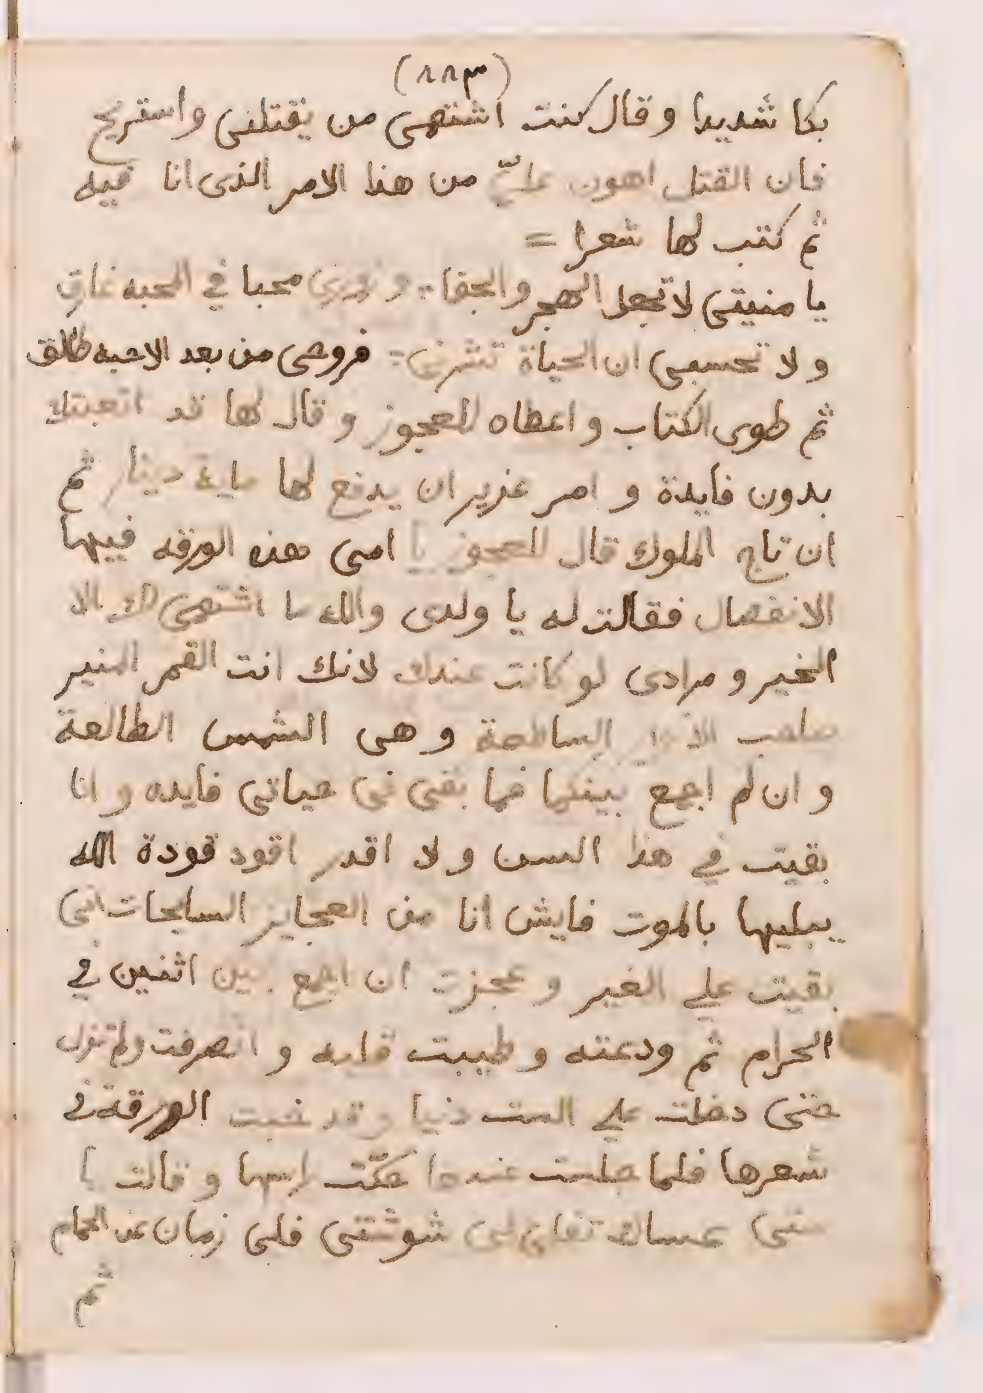 (٨٨٣)
بكا شديدا وقال كنت اشتهى من يقتلنى واستريح
فان القتل اهون علىّ من هذا الامر الذى انا فيه
ثم كتب لها شعرا =
يا منيتى لا تجعل الهجر والجفا محبا في المحبه غارق
ولا تحسبى ان الحياة فروحى من بعد الاحبه طالق
ثم طوى الكتاب واعطاه للعجوز وقال لها قد اتعبتك
بدون فايدة و امر عزيز ان يدفع لها ماية دينار ثم
ان تاج الملوك قال للعجوز يا امى هذه الورقه فيها
الانفصال فقالت له يا ولدى والله ما اشتهى لك الا
الخير و مرادى لو كانت عندك لانك انت القمر المنير
صاحب الانوار الساطعة وهى الشمس الطالعة
و ان لم اجمع بينكما فما بقى فى حياتى فايده و انا
بقيت في هذا السن ولا اقدر اقود قودة الله
يبليها بالموت فايش انا من العجايز السابحات
بقيت علي الغير و عجزت ان اجمع بين اثنين في
الحرام ثم ودعته و طيبت قلبه و انصرفت ولم تزل
حتى دخلت علي الست دنيا وقد خبت الورقة في
شعرها فلما جلست عندها حكّت راسها و قالت يا
ستى عساك تفلى لى شوشتى فلى زمان عن الحمام
ثم